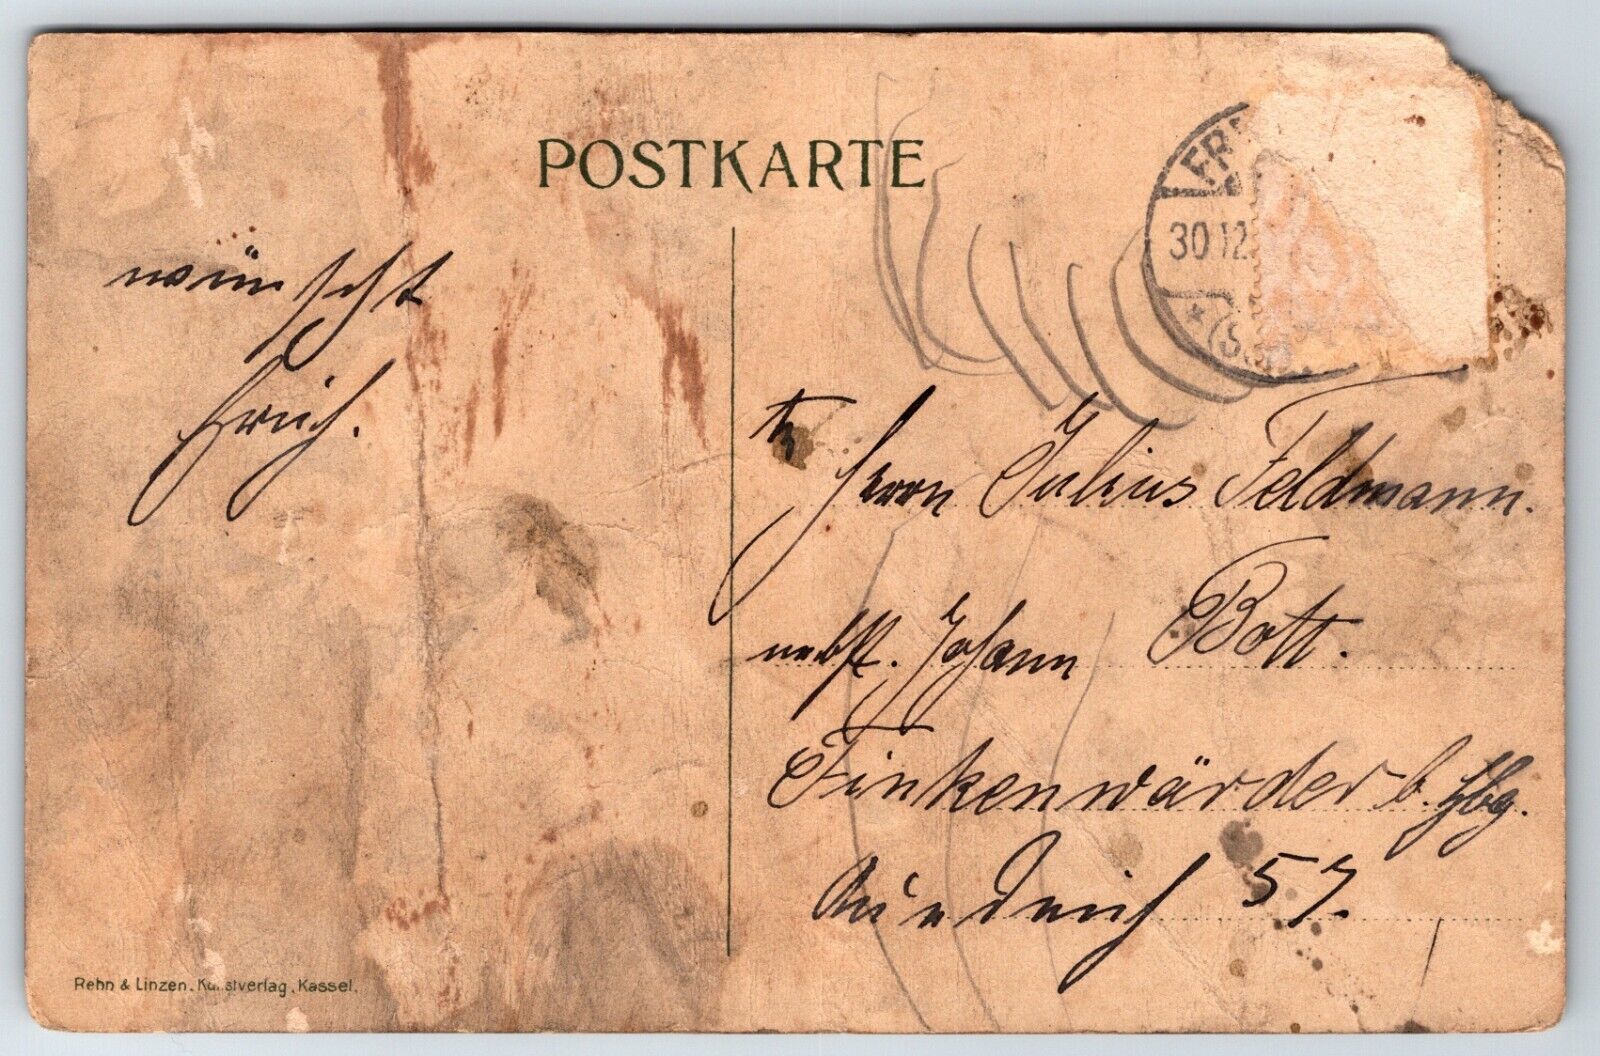 POSTKARTE
FR
30.12.
(S
wünscht
Erich.
Herrn Julius Feldmann.
nebst. Johann Bott.
Finkenwärder b. Hbg.
Auedeich 57.
Rehn & Linzen. Kunstverlag. Kassel.